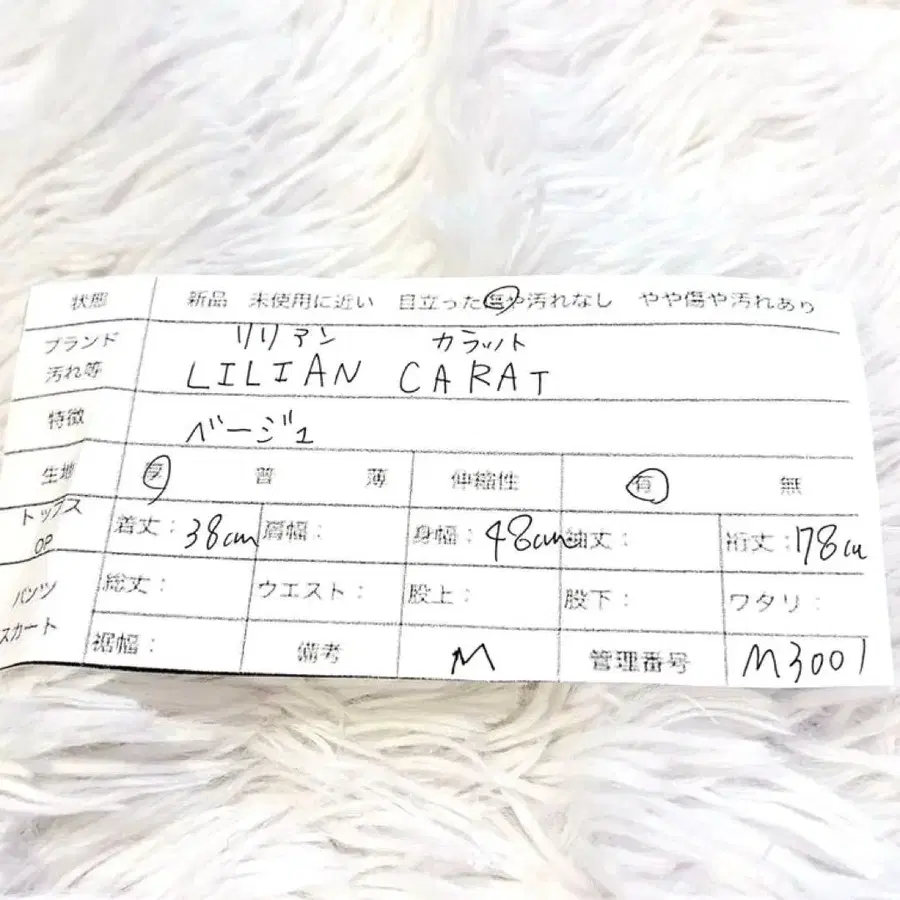 状態 新品 未使用に近い 目立った傷や汚れなし やや傷や汚れあり
ブランド リリアン カラット
汚れ等 LILIAN CARAT
特徴 ベージュ
生地 厚 普 薄 伸縮性 有 無
トップス OP 着丈：38cm 肩幅： 身幅：48cm 袖丈： 裄丈：78cm
パンツ 総丈： ウエスト： 股上： 股下： ワタリ：
スカート 裾幅： 備考 M 管理番号 M3001